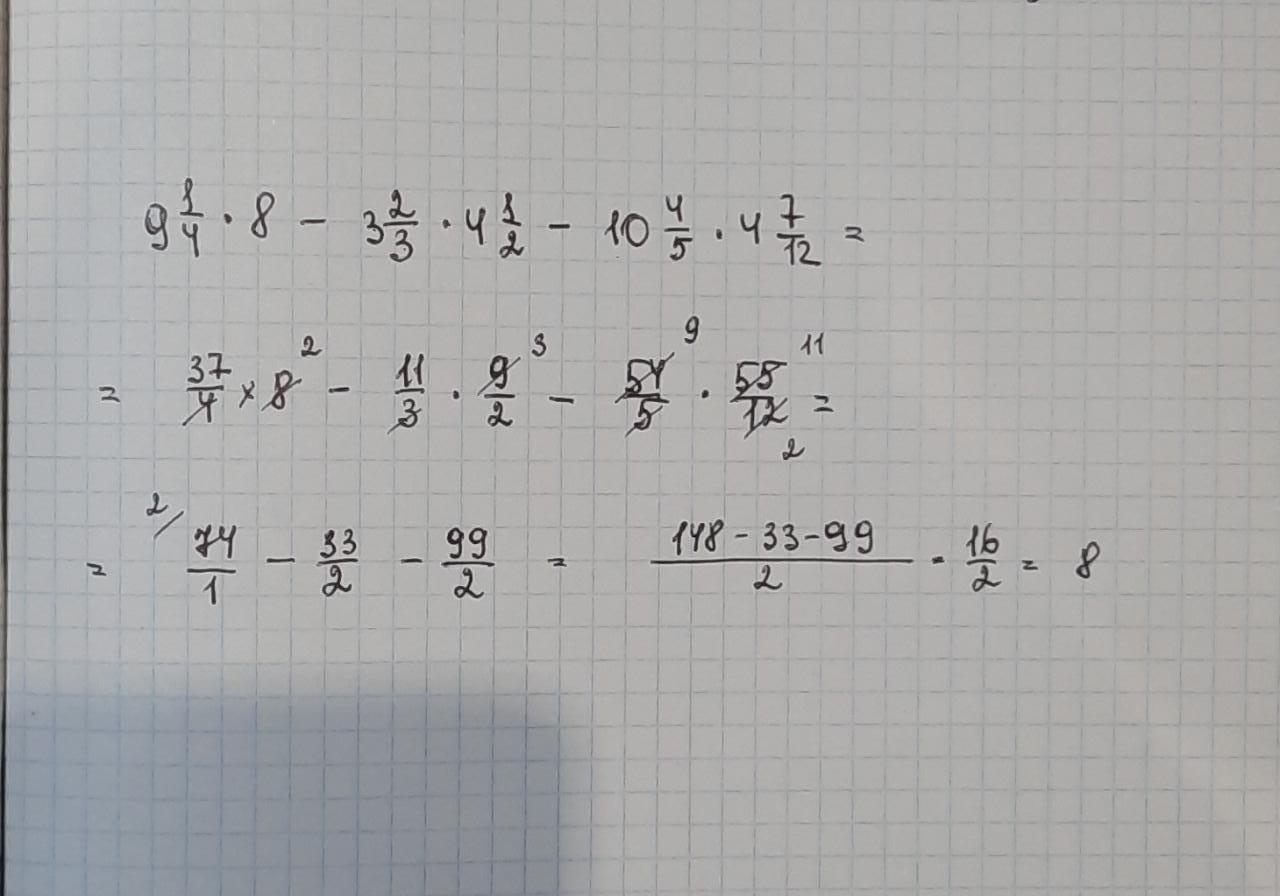 9 1/4 · 8 − 3 2/3 · 4 1/2 − 10 4/5 · 4 7/12 =
= 37/4 × 8 2 − 11/3 · 9/2 3 − 54/5 9 · 55/12 11 2 =
= 2/ 74/1 − 33/2 − 99/2 = (148 − 33 − 99)/2 = 16/2 = 8